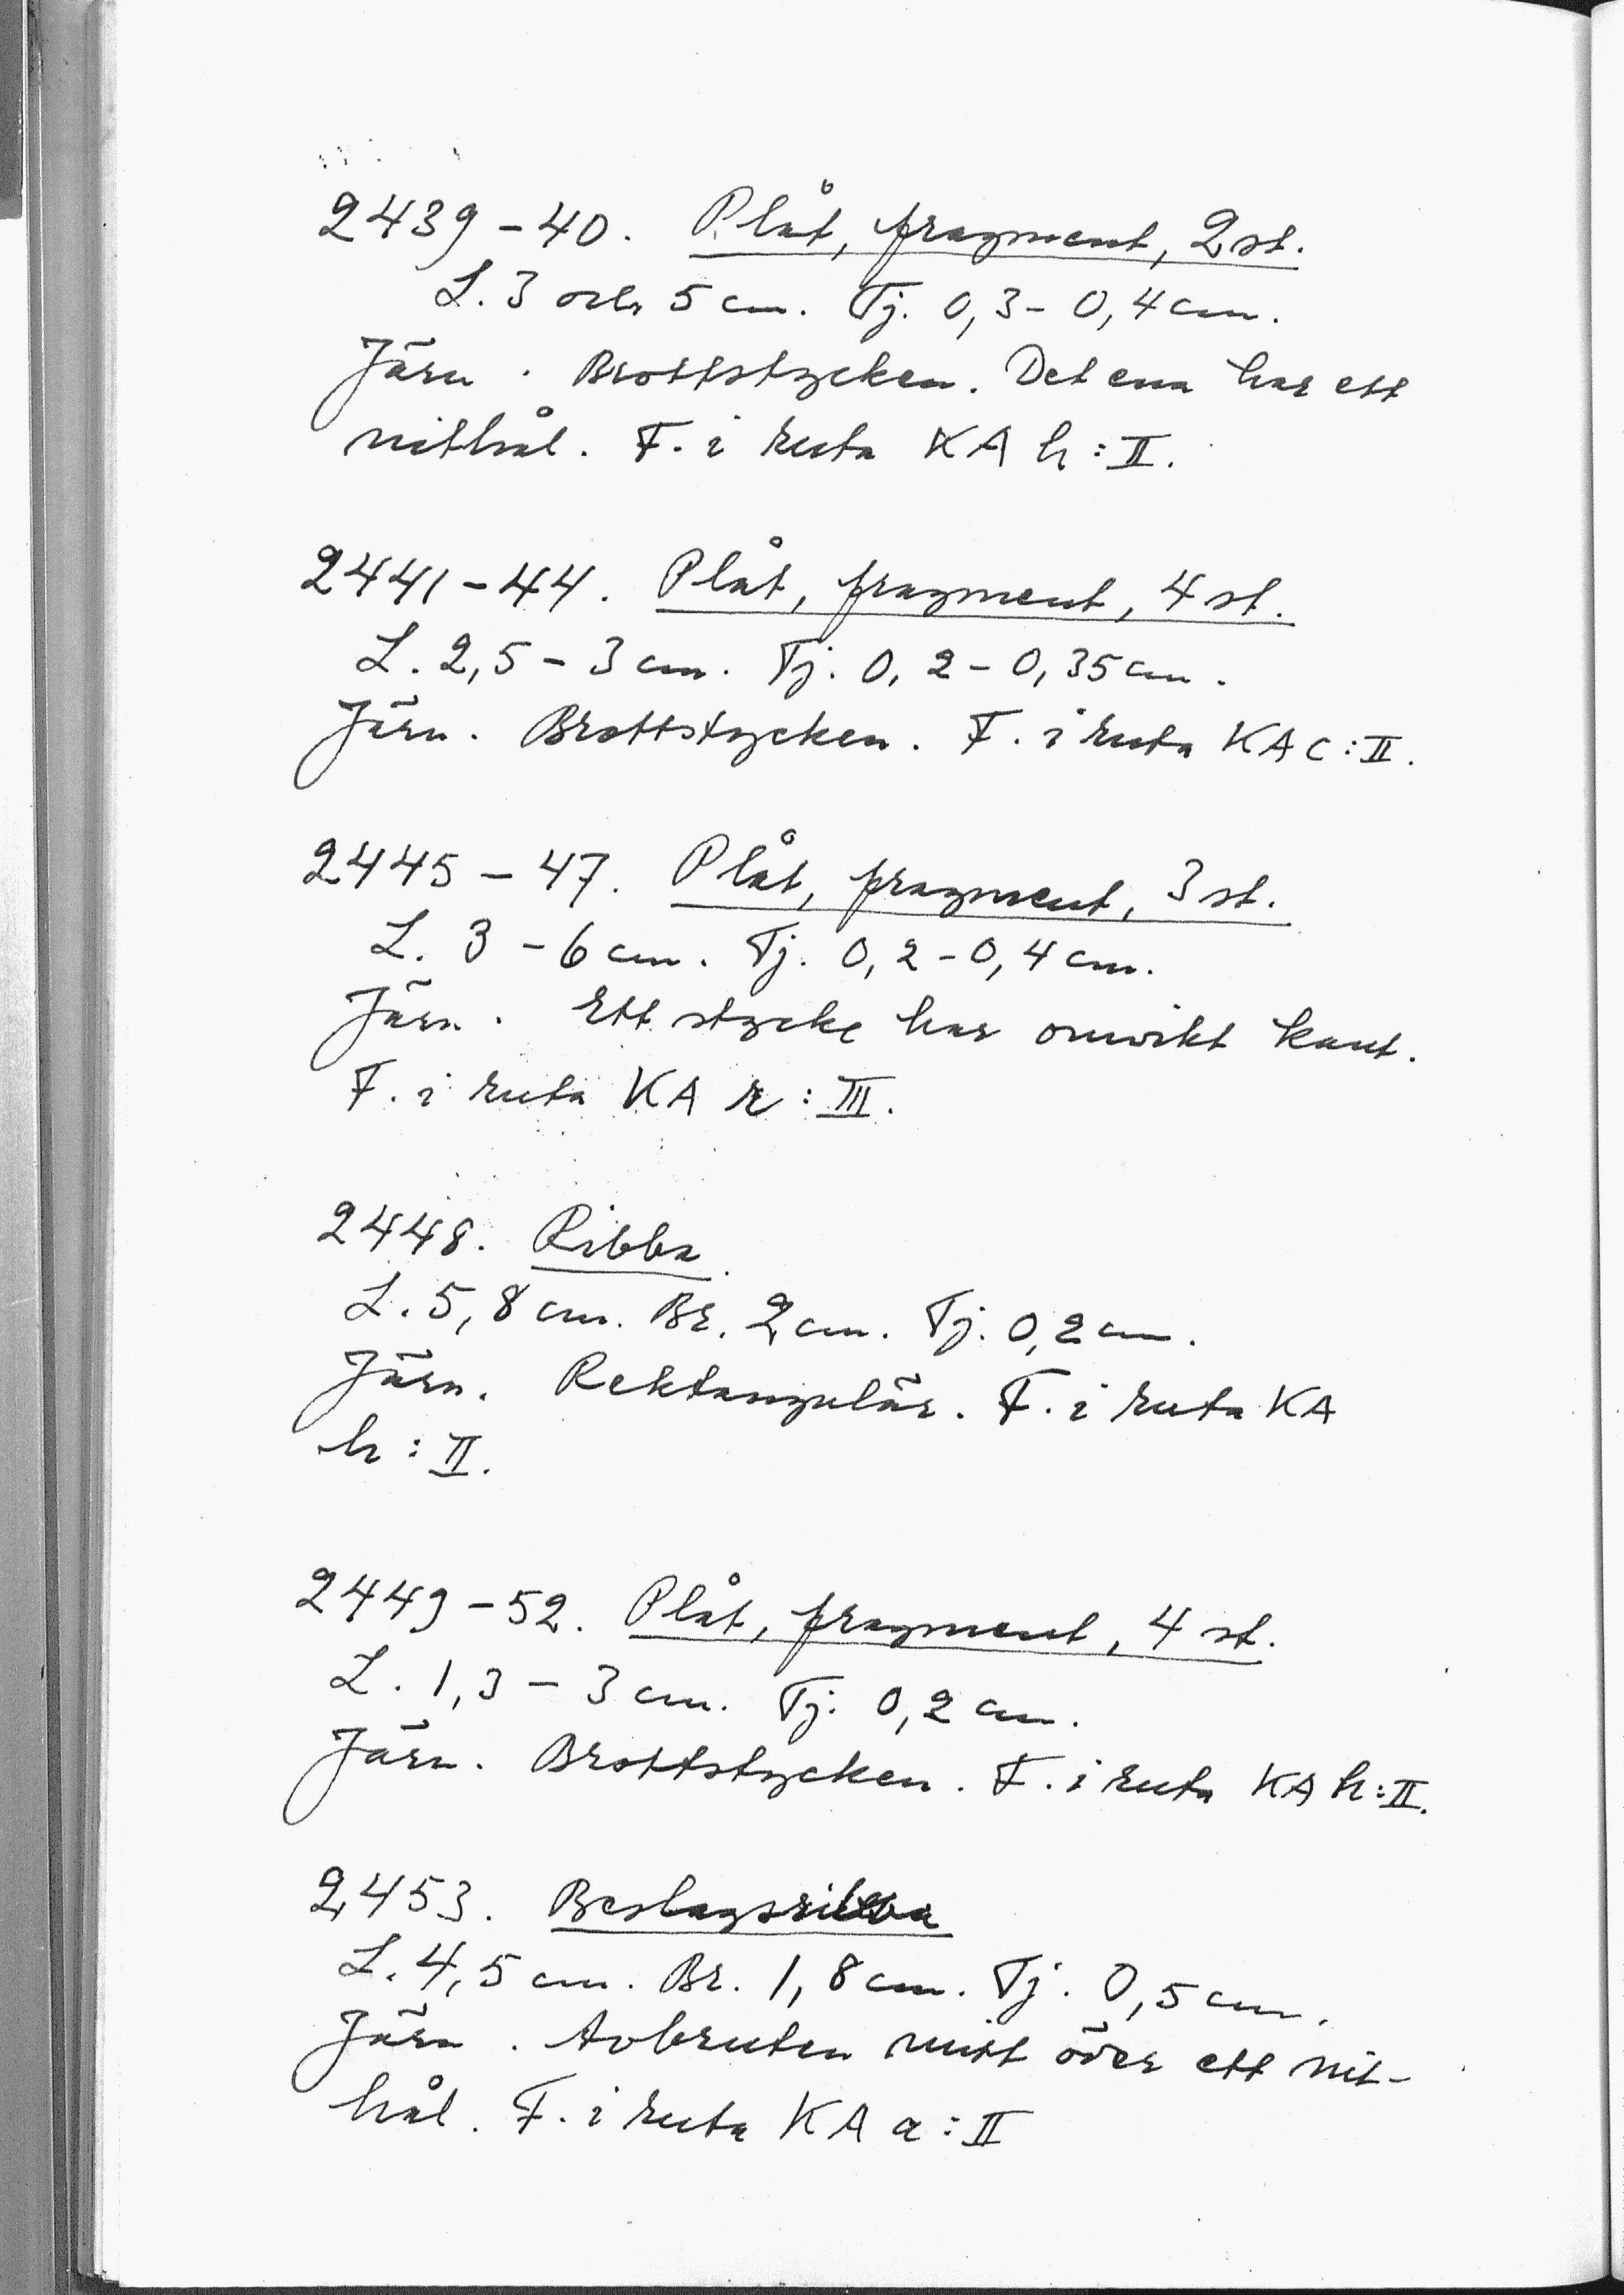 2439-40. Plåt, fragment, 2 st.
L. 3 och 5 cm. Tj. 0,3-0,4 cm.
Järn. Brottstycken. Det ena har ett
nithål. F. i ruta KA h:II.
2441-44. Plåt, fragment, 4 st.
L. 2,5-3 cm. Tj. 0,2-0,35 cm.
Järn. Brottstycken. F. i ruta KA c:II.
2445-47. Plåt, fragment, 3 st.
L. 3-6 cm. Tj. 0,2-0,4 cm.
Järn. Ett stycke har omvikt kant.
F. i ruta KA r:III.
2448. Ribba.
L. 5,8 cm. Br. 2 cm. Tj. 0,2 cm.
Järn. Rektangulär. F. i ruta KA
h:II.
2449-52. Plåt, fragment, 4 st.
L. 1,3-3 cm. Tj. 0,2 cm.
Järn. Brottstycken. F. i ruta KA h:II.
2453. Beslagsribba
L. 4,5 cm. Br. 1,8 cm. Tj. 0,5 cm.
Järn. Avbruten mitt över ett nit-
hål. F. i ruta KA a:II